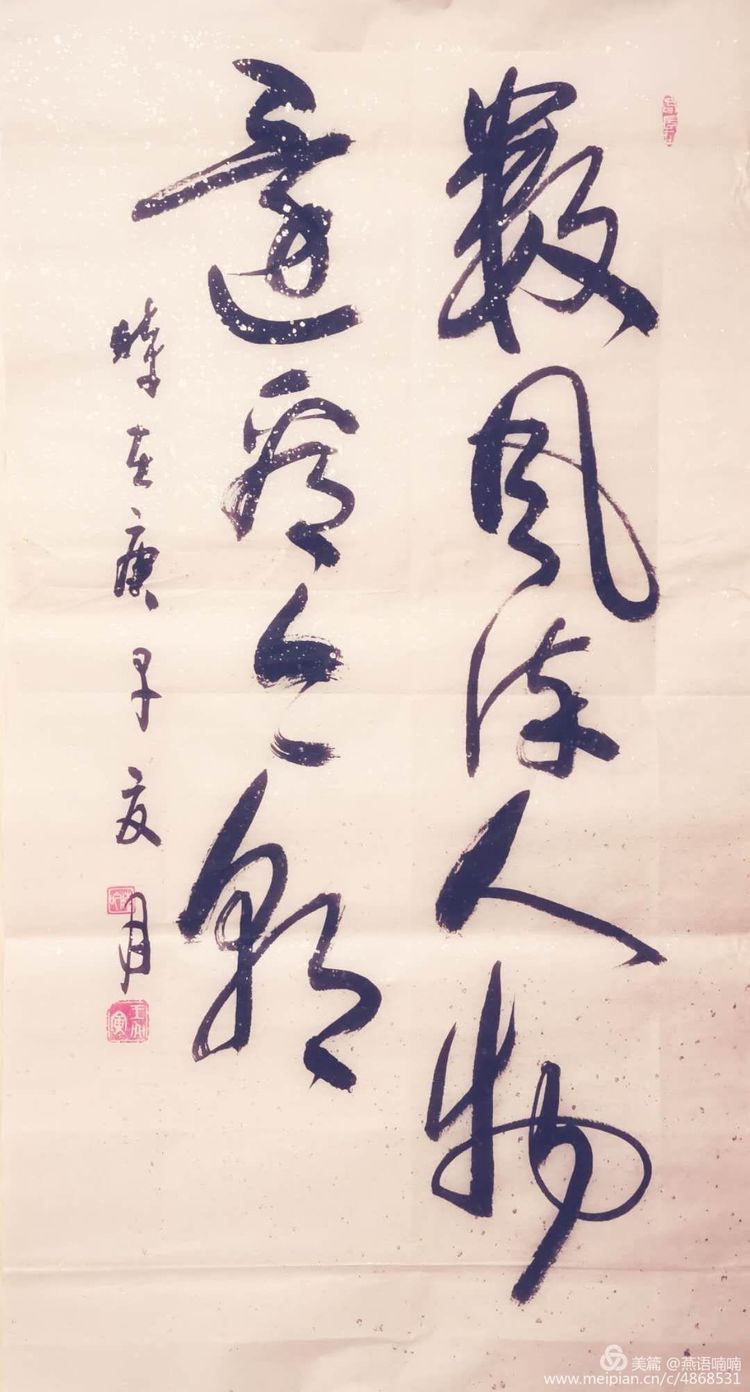 數風流人物
還看今朝
時在庚子夏月
美篇 @燕语喃喃
www.meipian.cn/c/4868531